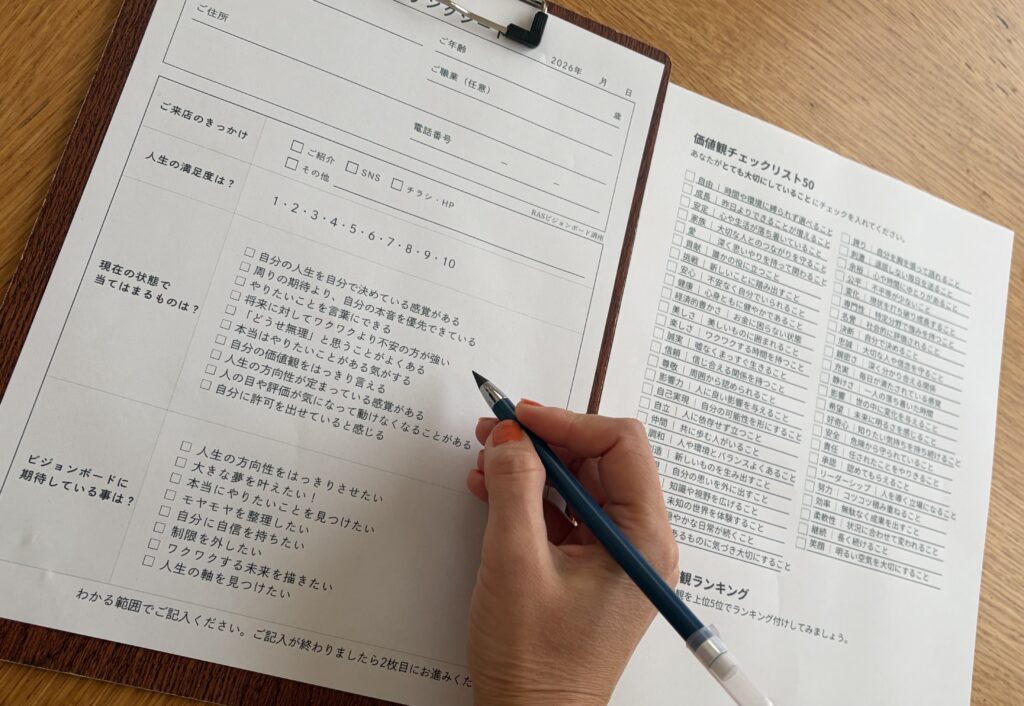 2026年　月　日
ご住所
ご年齢
歳
ご職業（任意）
電話番号
ご来店のきっかけ
□ ご紹介 □ SNS □ チラシ・HP
□ その他
RASビジョンボード講座
人生の満足度は？
1・2・3・4・5・6・7・8・9・10
現在の状態で
当てはまるものは？
□ 自分の人生を自分で決めている感覚がある
□ 周りの期待より、自分の本音を優先できている
□ やりたいことを言葉にできる
□ 将来に対してワクワクより不安の方が強い
□ 「どうせ無理」と思うことがよくある
□ 本当はやりたいことがある気がする
□ 自分の価値観をはっきり言える
□ 人生の方向性が定まっている感覚がある
□ 人の目や評価が気になって動けなくなることがある
□ 自分に許可を出せていると感じる
ビジョンボードに
期待している事は？
□ 人生の方向性をはっきりさせたい
□ 大きな夢を叶えたい！
□ 本当にやりたいことを見つけたい
□ モヤモヤを整理したい
□ 自分に自信を持ちたい
□ 制限を外したい
□ ワクワクする未来を描きたい
□ 人生の軸を見つけたい
わかる範囲でご記入ください。ご記入が終わりましたら2枚目にお進みくだ
価値観チェックリスト50
あなたがとても大切にしていることにチェックを入れてください。
□ 自由｜時間や環境に縛られず選べること
□ 成長｜昨日よりできることが増えること
□ 安定｜心や生活が落ち着いていること
□ 家族｜大切な人とのつながりを守ること
□ 愛｜深く思いやりを持って関わること
□ 貢献｜誰かの役に立つこと
□ 挑戦｜新しいことに踏み出すこと
□ 安心｜不安なく自分でいられること
□ 健康｜心身ともに健やかであること
□ 経済的豊かさ｜お金に困らない状態
□ 美しさ｜美しいものに囲まれること
□ 楽しさ｜ワクワクする時間を持つこと
□ 誠実｜嘘なくまっすぐ生きること
□ 信頼｜信じ合える関係を持つこと
□ 尊敬｜周囲から認められること
□ 影響力｜人に良い影響を与えること
□ 自己実現｜自分の可能性を形にすること
□ 自立｜人に依存せず立つこと
□ 仲間｜共に歩む人がいること
調和｜人や環境とバランスよくあること
造｜新しいものを生み出すこと
｜自分の思いを外に出すこと
｜知識や視野を広げること
未知の世界を体験すること
やかな日常が続くこと
あるものに気づき大切にすること
□ 誇り｜自分を胸を張って語れること
□ 刺激｜退屈しない毎日を送ること
□ 余裕｜心や時間にゆとりがあること
□ 変化｜現状を打ち破り成長すること
□ 専門性｜特定分野で強みを持つこと
□ 名誉｜社会的に評価されること
□ 決断｜自分で決めること
□ 忠誠｜大切な人や信念を守ること
□ 親密さ｜深く分かり合える関係
□ 充実｜毎日が満たされていること
□ 静けさ｜一人の落ち着いた時間
□ 影響｜世の中に変化を与えること
□ 希望｜未来に明るさを感じること
□ 好奇心｜知りたい気持ちを持ち続けること
□ 安全｜危険から守られていること
□ 責任｜任されたことをやりきること
□ 承認｜認めてもらえること
□ リーダーシップ｜人を導く立場になること
□ 努力｜コツコツ積み重ねること
□ 効率｜無駄なく成果を出すこと
□ 柔軟性｜状況に合わせて変われること
□ 継続｜長く続けること
□ 笑顔｜明るい空気を大切にすること
観ランキング
観を上位5位でランキング付けしてみましょう。